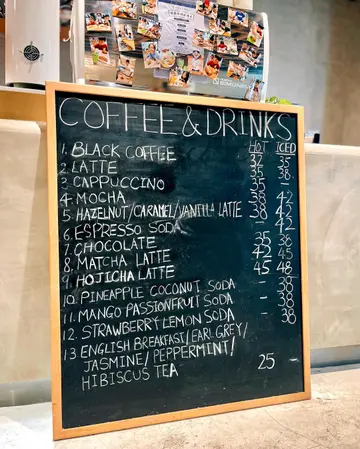 COFFEE & DRINKS
HOT ICED
1. BLACK COFFEE 32 35
2. LATTE 35 38
3. CAPPUCCINO 35 -
4. MOCHA 38 42
5. HAZELNUT/CARAMEL/VANILLA LATTE 38 42
6. ESPRESSO SODA - 42
7. CHOCOLATE 35 38
8. MATCHA LATTE 42 45
9. HOJICHA LATTE 45 48
10. PINEAPPLE COCONUT SODA - 38
11. MANGO PASSIONFRUIT SODA - 38
12. STRAWBERRY LEMON SODA - 38
13 ENGLISH BREAKFAST/EARL GREY/
JASMINE/PEPPERMINT/ 25 -
HIBISCUS TEA